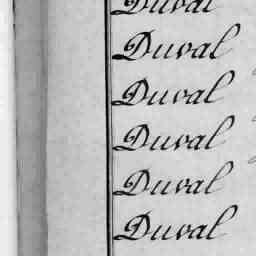 Duval
Duval
Duval
Duval
Duval
Duval